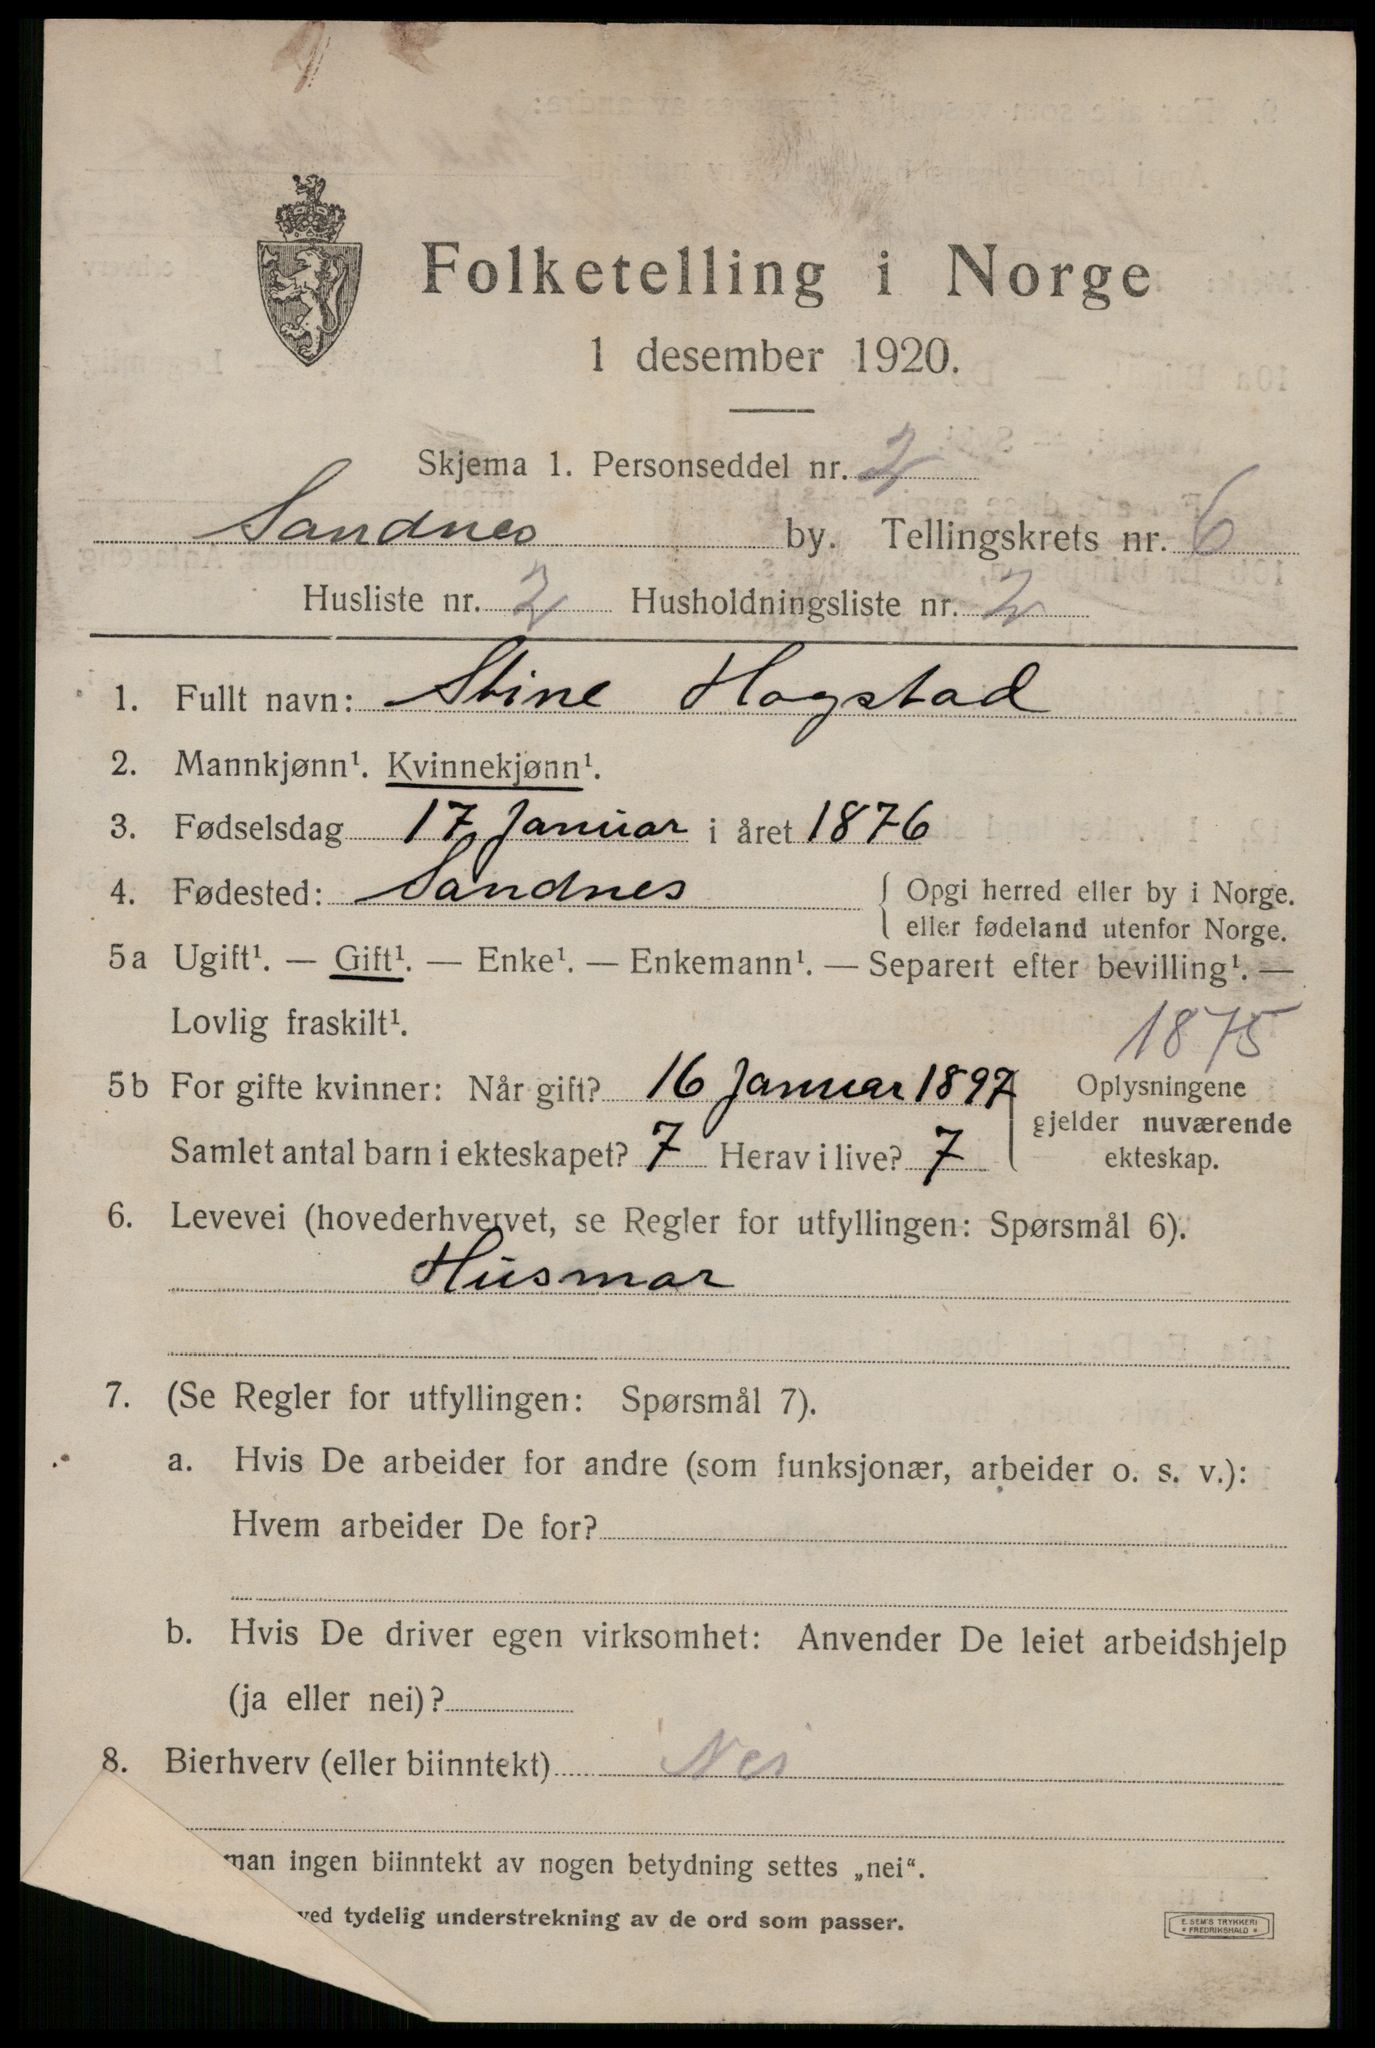 Folketelling i Norge
1 desember 1920.
Skjema 1. Personseddel nr. 2
Sandnes by. Tellingskrets nr. 6
Husliste nr. 2 Husholdningsliste nr. 2
1. Fullt navn: Stine Hogstad
2. Mannkjønn¹. Kvinnekjønn¹.
3. Fødselsdag 17 Januar i året 1876
4. Fødested: Sandnes { Opgi herred eller by i Norge.
eller fødeland utenfor Norge.
5a Ugift¹. — Gift¹. — Enke¹. — Enkemann¹. — Separert efter bevilling¹. —
Lovlig fraskilt¹. 1875
5b For gifte kvinner: Når gift? 16 Januar 1897 Oplysningene
gjelder nuværende
Samlet antal barn i ekteskapet? 7 Herav i live? 7 ekteskap.
6. Levevei (hovederhvervet, se Regler for utfyllingen: Spørsmål 6).
Husmor
7. (Se Regler for utfyllingen: Spørsmål 7).
a. Hvis De arbeider for andre (som funksjonær, arbeider o. s. v.):
Hvem arbeider De for?
b. Hvis De driver egen virksomhet: Anvender De leiet arbeidshjelp
(ja eller nei)?
8. Bierhverv (eller biinntekt) Nei
man ingen biinntekt av nogen betydning settes „nei“.
ved tydelig understrekning av de ord som passer.
E. SEM'S TRYKKERI
* FREDRIKSHALD *